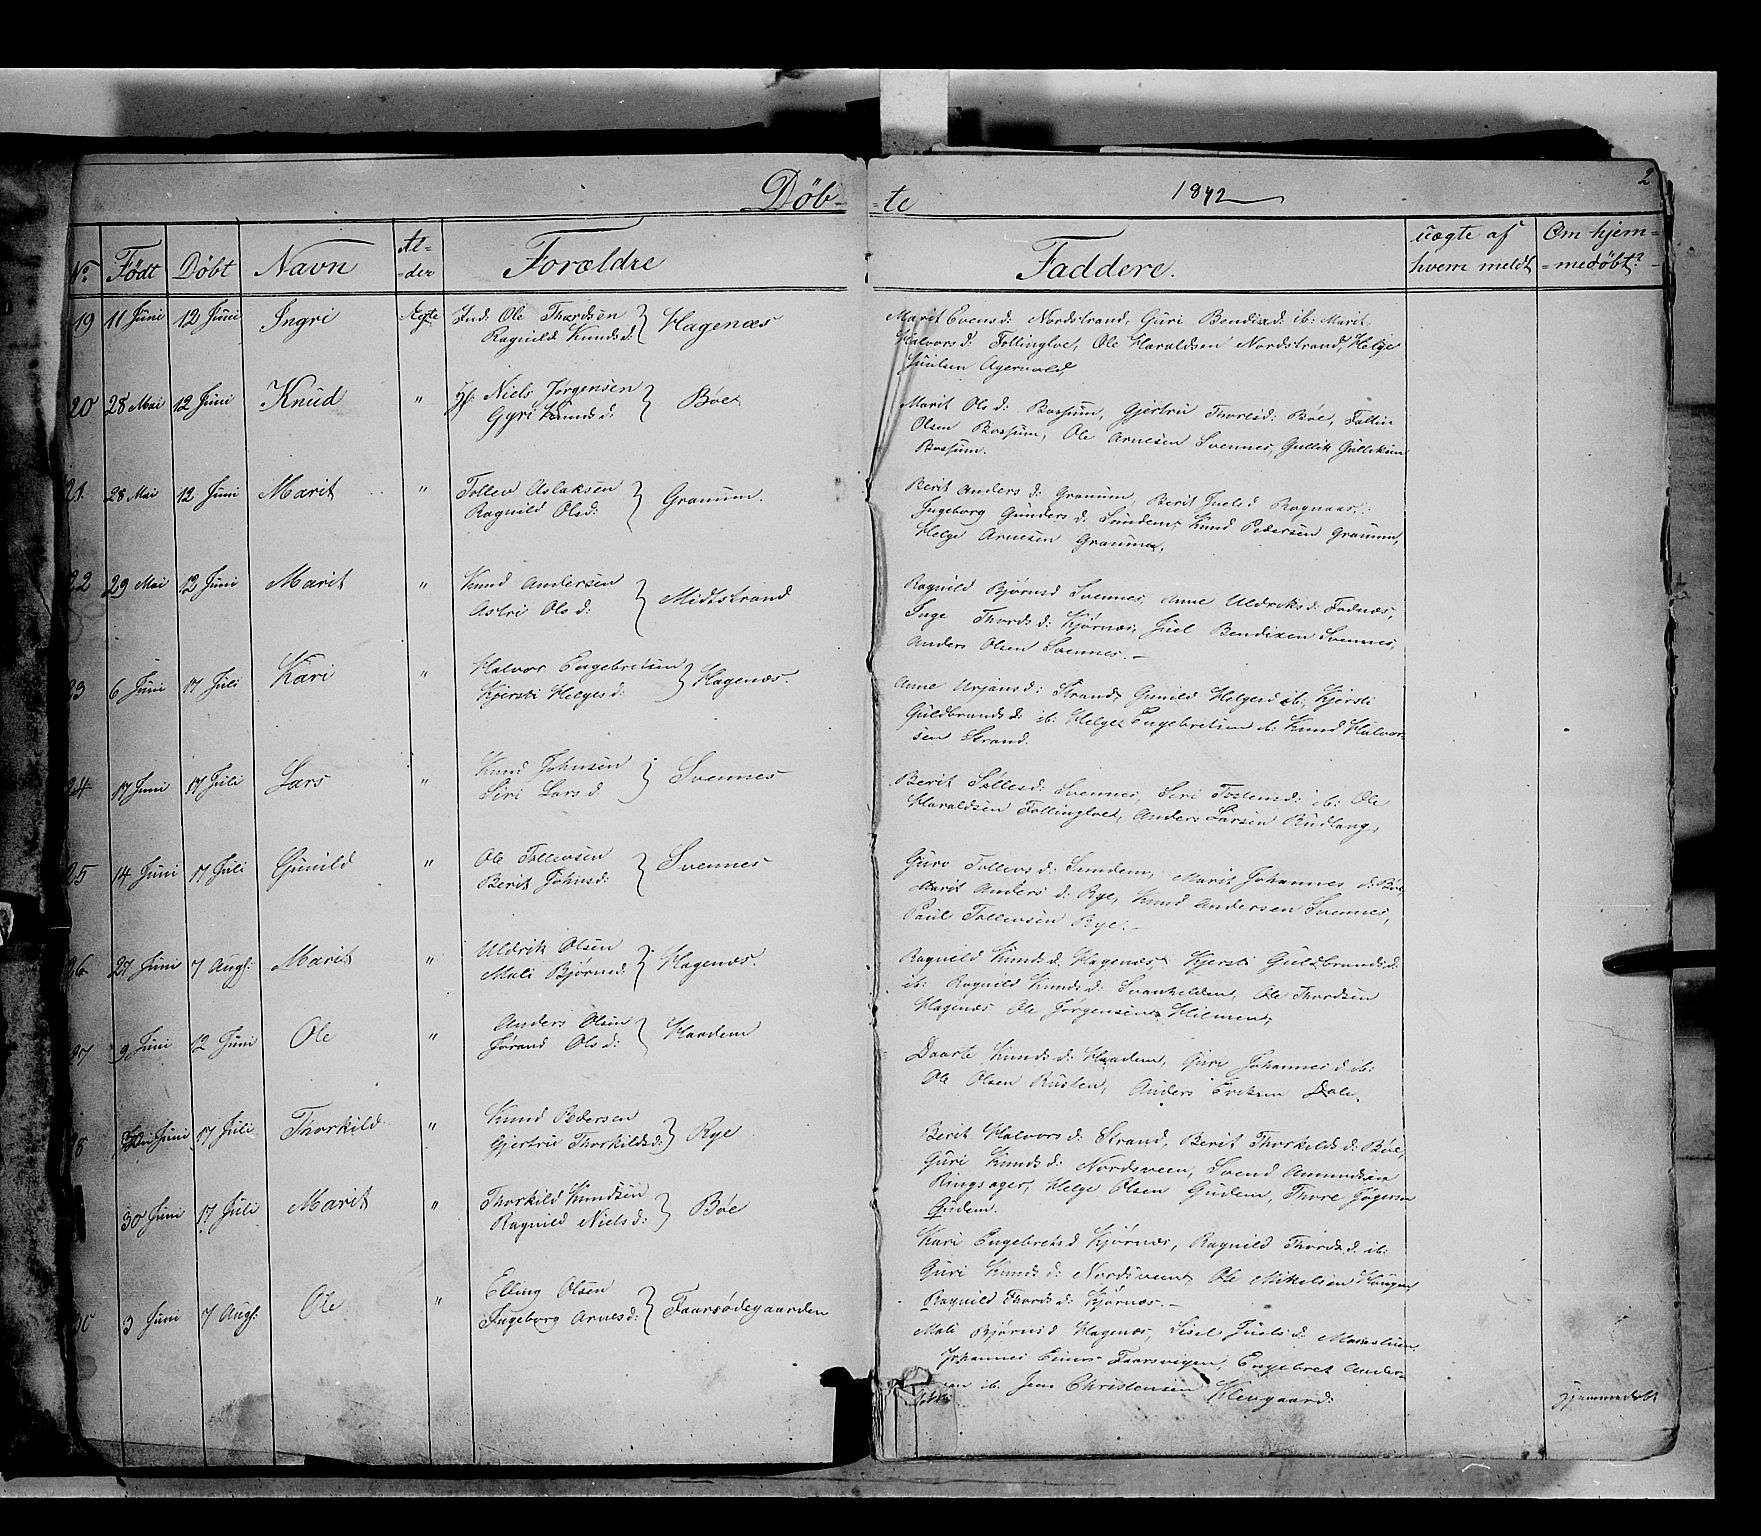 Døb- -te 1842 2
No Født Døbt Navn Al- -der Forældre Faddere. uægte af hvem meldt Om hjem- -medøbt?
19 11 Juni 12 Juni Ingri Ægte Ind: Ole Thordsen
Ragnild Knudsd: } Hagenæs
Marit Evensd: Nordstrand, Guri Bendixd: ib: Marit
Halvorsd: Follingloet, Ole Haraldsen Nordstrand, Helge
20 28 Mai 12 Juni Knud " Niels Jørgensen
Gyri Knudsd: } Bøe
Marit Olsd: Gjertru Bøe,
Olsen Ole Arnesen Svennes, Gullik Gulliksen
21 28 Mai 12 Juni Marit " Tollev Aslaksen
Ragnild Olsd: } Granum.
Berit Andersd: Granum, Berit Juelsd
Ingeborg Gundersd: Sundem, Knud Pedersen Granum,
Helge Arnesen Granum.
22 29 Mai 12 Juni Marit " Knud Andersen
Astri Olsd: } Midtstrand
Ragnild Bjørnsd Svennes, Anne Uldriksd: Fodnæs,
Inge Thordsd: Kjørnæs, Juel Bendixen Svennes,
Anders Olsen Svennes. -
23 6 Juni 17 Juli Kari " Halvor Engebretsen
Kjersti Helgesd: } Hagenæs.
Anne Ørjansd: Strand, Gunild Helgesd ib: Kjersti
Guldbrandsd: ib: Helge Engebretsen ib: Knud Halvor-
sen Strand.
24 17 Juni 17 Juli Lars " Knud Johnsen
Siri Larsd. } Svennes
Berit Svennes, Siri Tostensd: ib: Ole
Haraldsen Follingloet, Anders Larsen Rudlang,
25 14 Juni 17 Juli Gunild " Ole Tollevsen
Berit Johnsd: } Svennes
Guro Tollevsd: Sundem, Marit Johannesd: Bøe
Marit Andersd: Rye, Knud Andersen Svennes,
Paul Tollevsen Rye. -
26 27 Juni 7 Augs: Marit " Uldrik Olsen
Mali Bjørnsd: } Hagenæs.
Ragnild Knudsd. Hagenæs, Kjersti Guldbrandsd:
ib: Ragnild Knudsd: Ole Thordsen
Hagenæs Ole Jørgensen
27 9 Juni 12 Juni Ole " Anders Olsen
Jørand Olsd: } Haadem
Daarte Knudsd: Haadem, Guri Johannesd ib:
Ole Olsen Rusten, Anders Eriksen Dale.
28 Juni 17 Juli Thorkild " Knud Pedersen
Gjertru Thorkildsd: } Rye
Berit Halvorsd: Strand, Berit Thorkildsd: Bøe,
Guri Knudsd: Nordsveen, Svend Amundsen
Ringsager, Helge Olsen Gudem, Thore
Gudem.
30 Juni 17 Juli Marit " Thorkild Knudsen
Ragnild Nielsd: } Bøe
Kari Engebretsd Kjørnæs, Ragnild Thordsd. ib:
Guri Knudsd: Nordsveen, Ole Mikelsen Haugen,
Ragnild Thordsd: Kjørnæs. -
30 3 Juni 7 Augs: Ole " Elling Olsen
Ingeborg Arnesd: } Faarsødegaarden
Mali Bjørnsd Hagenæs, Sisel Juelsd:
Johannes Faarsvigen, Engebret Anders-
ib. Jens Christensen Klevgaard.
Hjemmedøbt